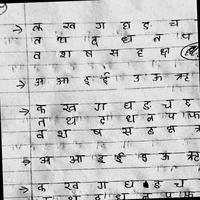 → क ख ग घ ङ च
त थ द ध न प
व श ष स ह क्ष
→ अ आ इ ई उ ऊ ऋ
→ क ख ग घ ङ च छ
त थ द ध न प फ
व श ष स ह क्ष त्र
→ अ आ इ ई उ ऊ ऋ
→ क ख ग घ ङ च